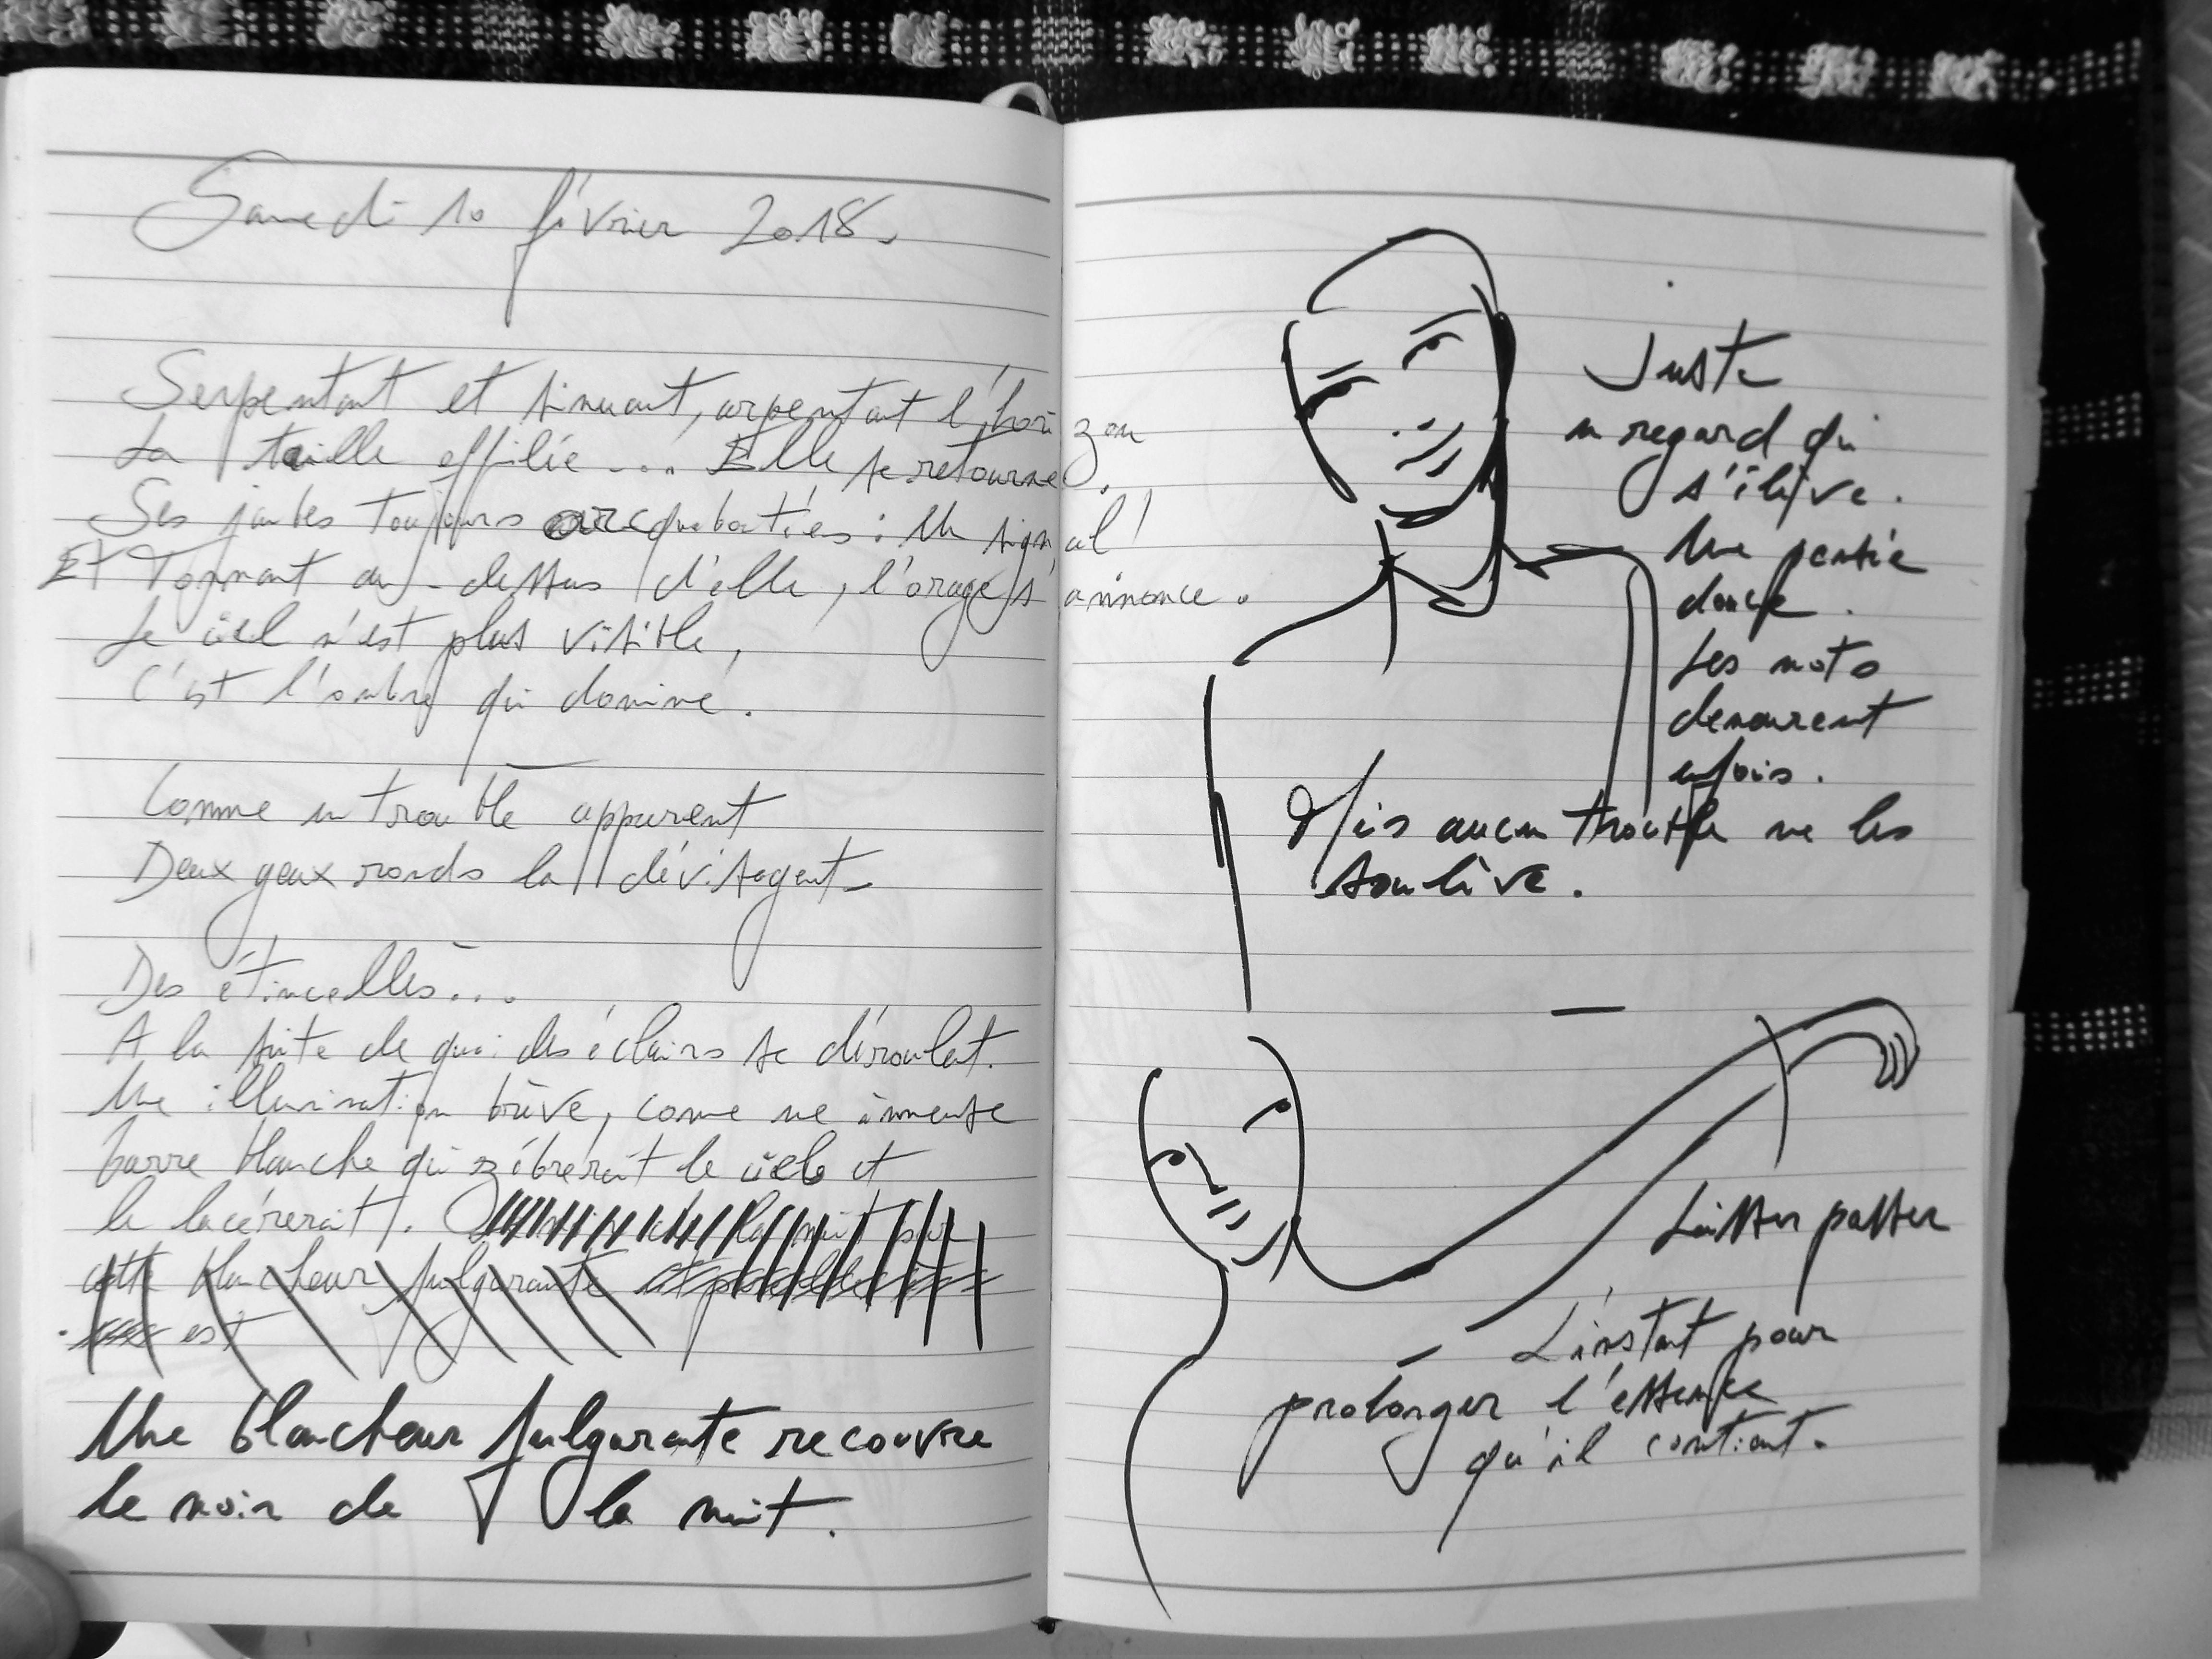 Samedi 10 février 2018.
Serpentant et sinuant, arpentant l'horizon
La taille effilée... Elle se retourne.
Ses jambes toujours arcqueboutées : Un signal !
Et Tonnant au-dessus d'elle, l'orage s'annonce.
Le ciel n'est plus visible,
C'est l'ombre qui domine.
Comme un trouble apparent
Deux yeux ronds la dévisagent.
Des étincelles...
A la suite de quoi des éclairs se déroulent.
Une illumination brève, comme une immense
barre blanche qui zébrerait le ciel et
le lacérerait. la nuit par
cette blancheur fulgurante
est
Une blancheur fulgurante recouvre
le noir de la nuit.
Juste
un regard qui
s'élève.
Une pensée
douce.
Les mots
demeurent
enfouis.
Mais aucun trouble ne les
soulève.
Laisser passer
L'instant pour
prolonger l'essence
qu'il contient.